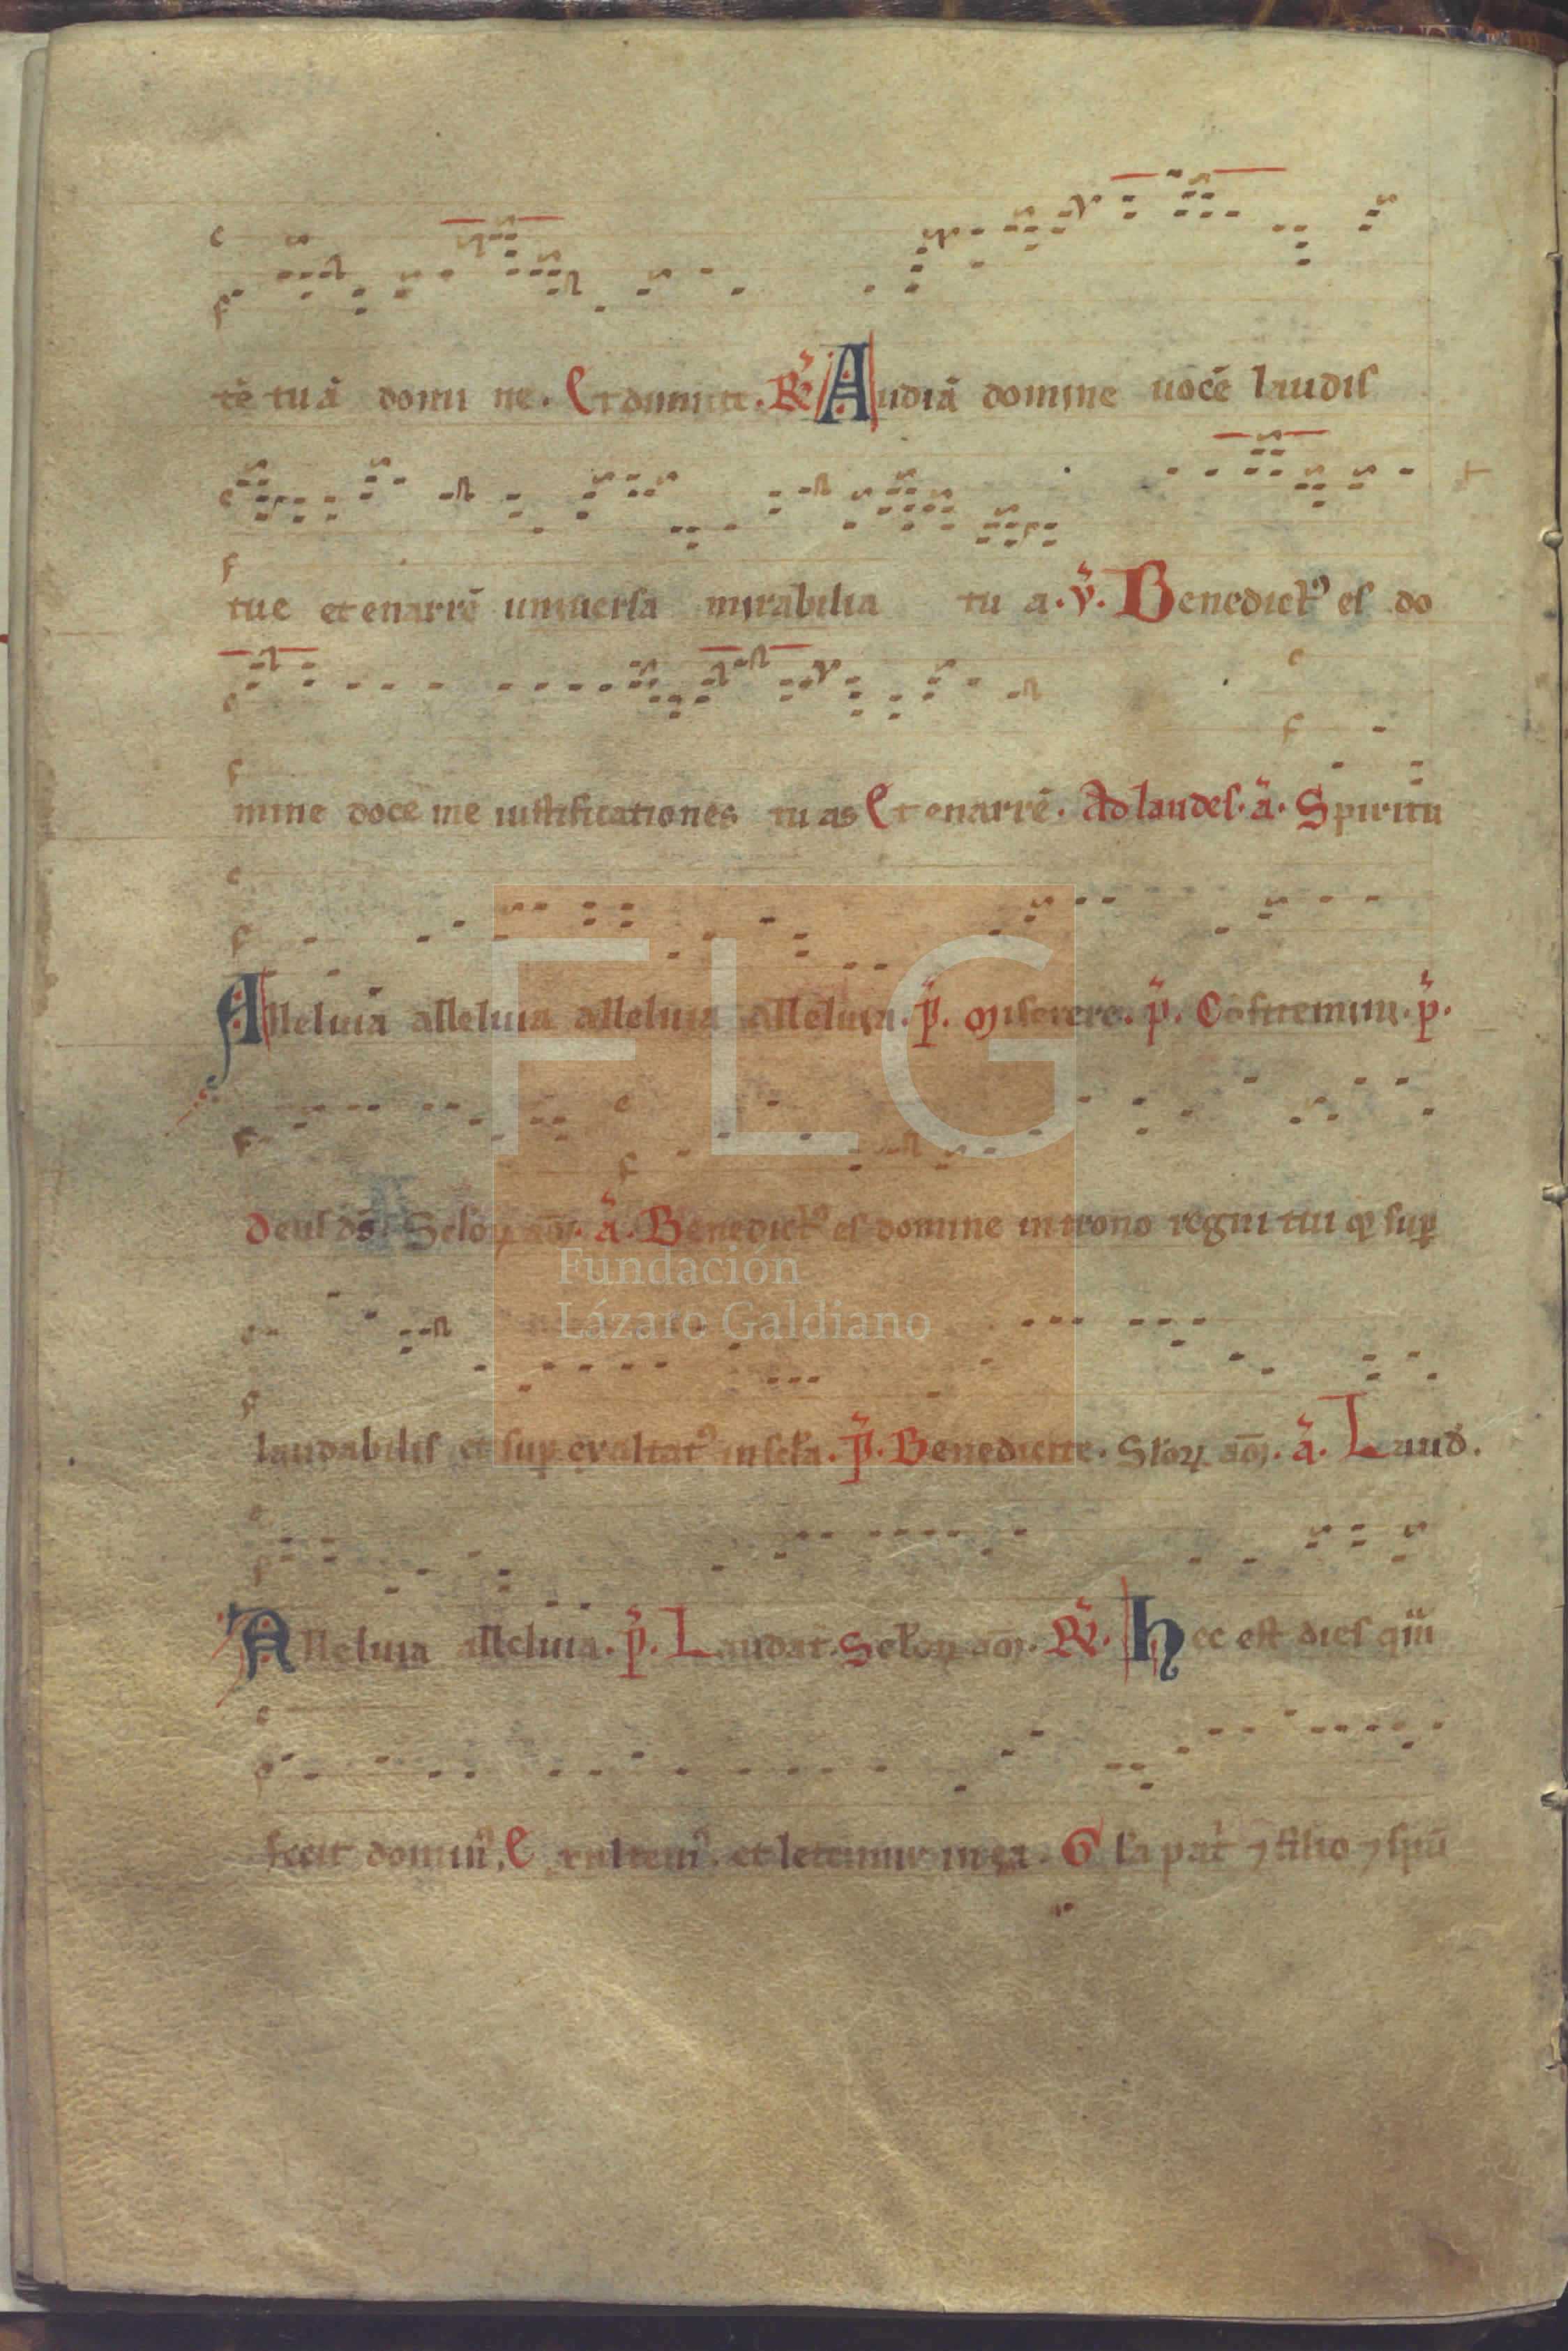 tē tuā domi ne. Et dimitte. R̃ Audiā domine uocē laudis
tue et enarrē uniuersa mirabilia tu a. ṽ. Benedict⁹ es do
mine doce me iustificationes tu as Et enarrē. Ad laudes. ã. Spiritu
Alleluia alleluia alleluia alleluia. p̃. Miserere. p̃. Cōfitemini. p̃.
Deus ds̄. ã. Benedict⁹ es domine in trono regni tui
laudabilis et sup exaltat⁹ in scła. p̃. Benedicite. ã. Laud.
Alleluia alleluia. p̃. Laudat. R̃. Hec est dies quā
fecit domin⁹. Exultem⁹ et letemur in ea. Gła pat̄ ⁊ filio ⁊ spū
FLG
Fundación
Lázaro Galdiano